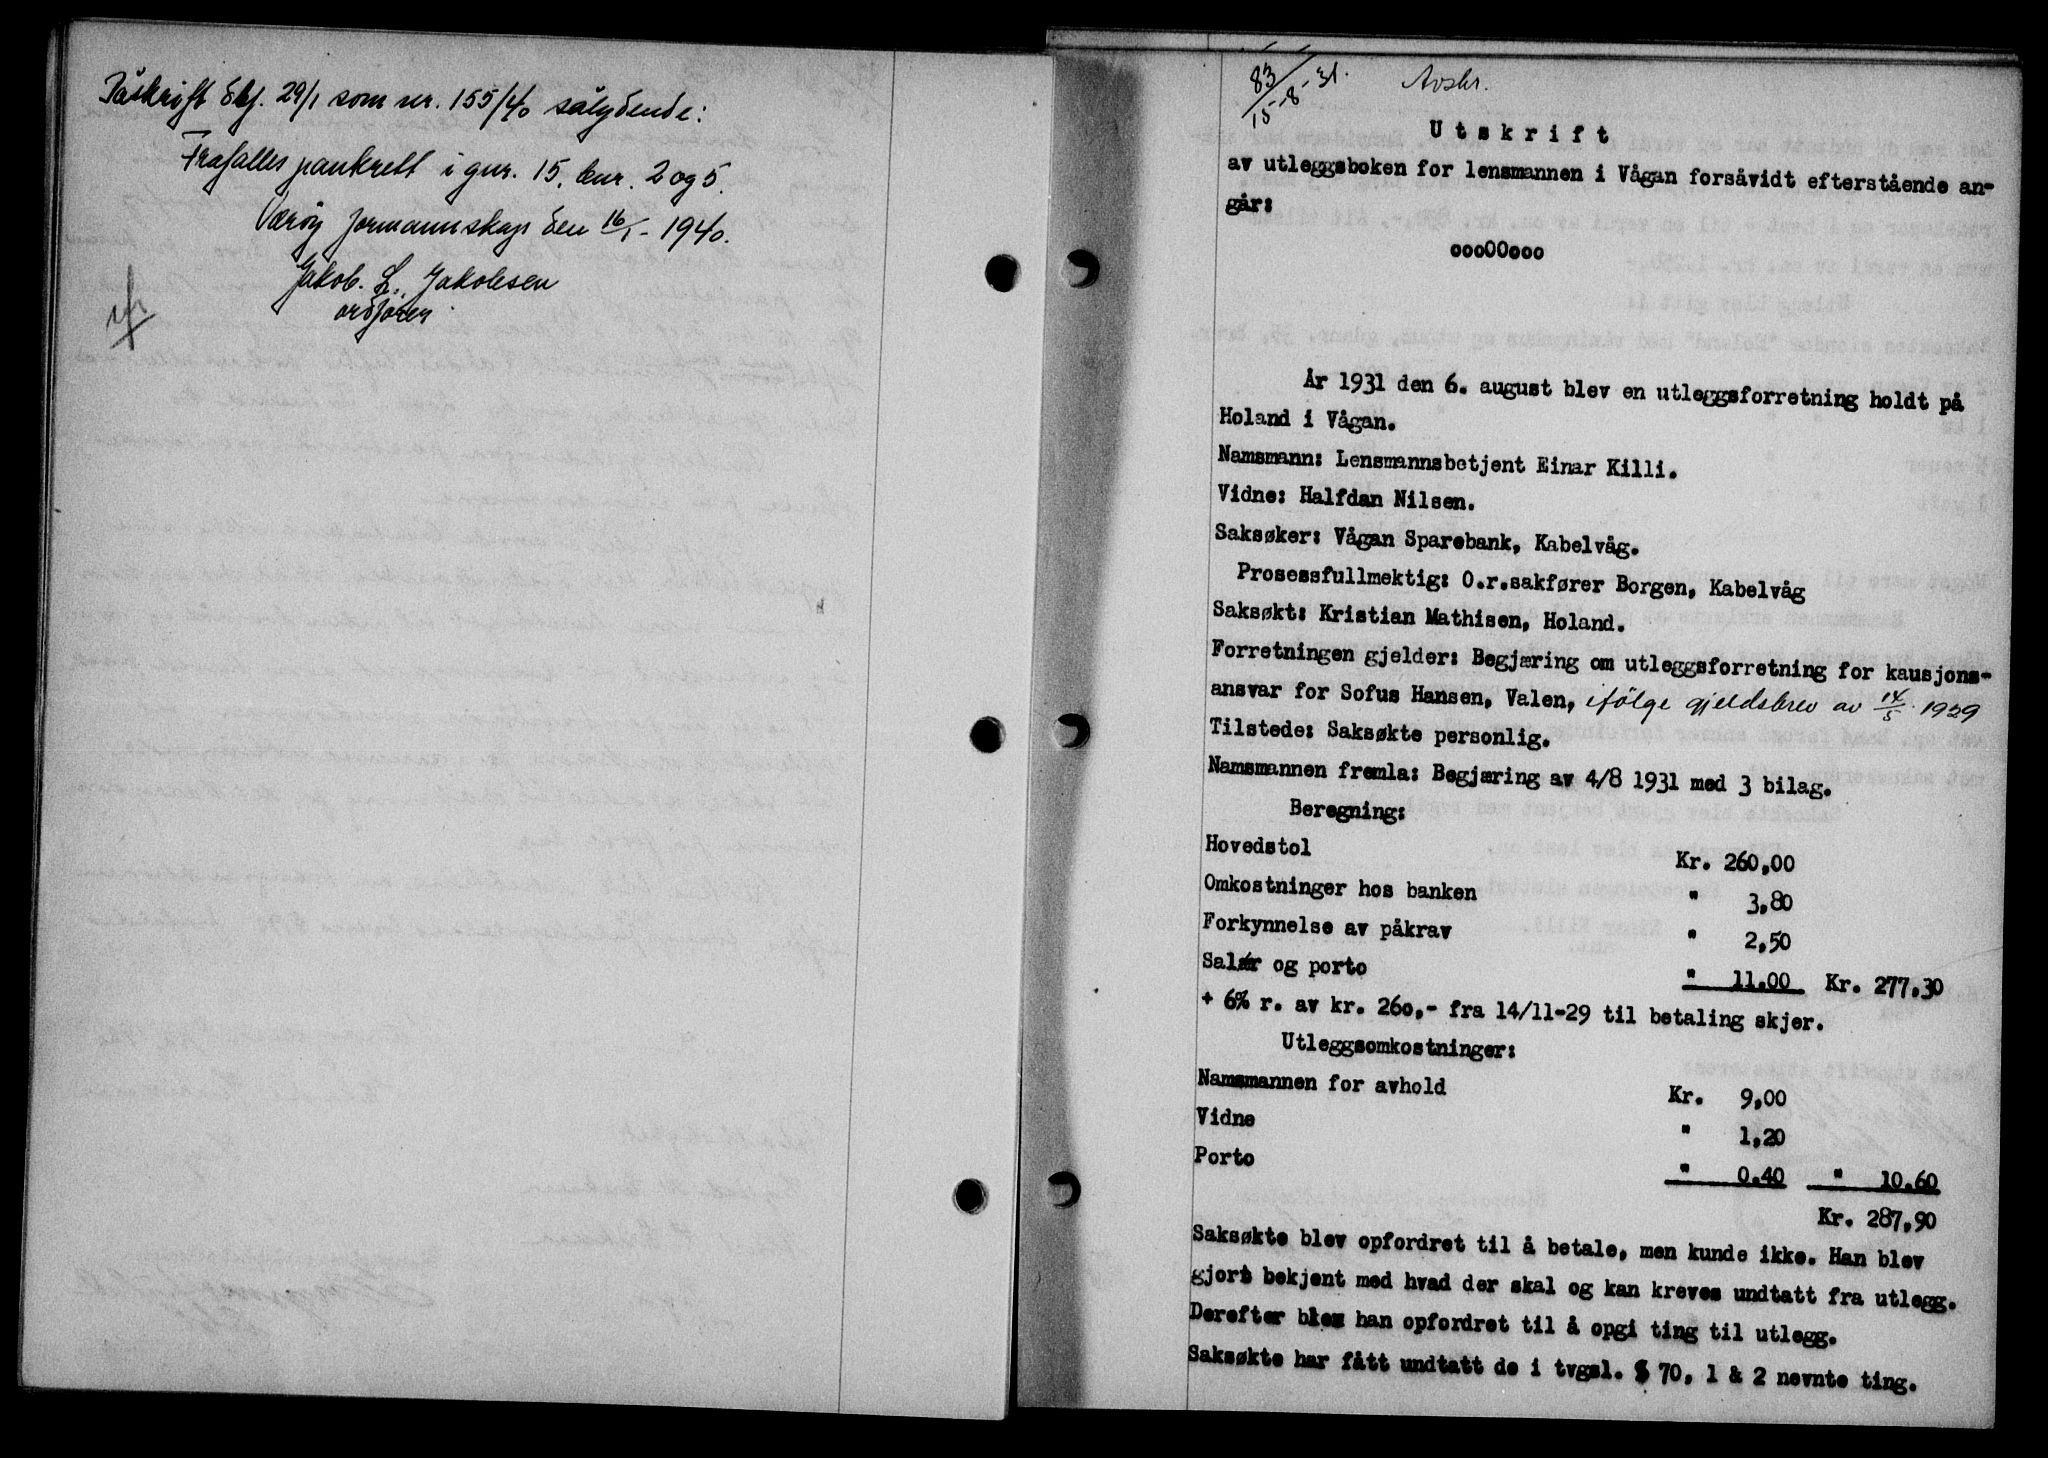 Påskrift dbf. 29/1 som nr. 155/40 sålydende:
Frafalles pantrett i gnr. 15, bnr. 2 og 5.
Værøy formannskap den 16/1-1940.
Jakob. L. Jakobsen
ordfører
83/15-8-31. Avskr.
Utskrift
av utleggsboken for lensmannen i Vågan forsåvidt efterstående an-
går:
oooOOooo
År 1931 den 6. august blev en utleggsforretning holdt på
Holand i Vågan.
Namsmann: Lensmannsbetjent Einar Killi.
Vidne: Halfdan Nilsen.
Saksøker: Vågan Sparebank, Kabelvåg.
Prosessfullmektig: O.r.sakfører Borgen, Kabelvåg
Saksøkt: Kristian Mathisen, Holand.
Forretningen gjelder: Begjæring om utleggsforretning for kausjons-
ansvar for Sofus Hansen, Valen, ifölge gjeldsbrev av 14/5 1929
Tilstede: Saksøkte personlig.
Namsmannen fremla: Begjæring av 4/8 1931 med 3 bilag.
Beregning:
Hovedstol Kr. 260,00
Omkostninger hos banken " 3,80
Forkynnelse av påkrav " 2,50
Salær og porto " 11.00 Kr. 277.30
+ 6% r. av kr. 260,- fra 14/11-29 til betaling skjer.
Utleggsomkostninger:
Namsmannen for avhold Kr. 9,00
Vidne " 1,20
Porto " 0.40 " 10.60
Kr. 287,90
Saksøkte blev opfordret til å betale, men kunde ikke. Han blev
gjort bekjent med hvad der skal og kan kreves undtatt fra utlegg.
Derefter blev han opfordret til å opgi ting til utlegg.
Saksøkte har fått undtatt de i tvgsl. § 70, 1 & 2 nevnte ting.